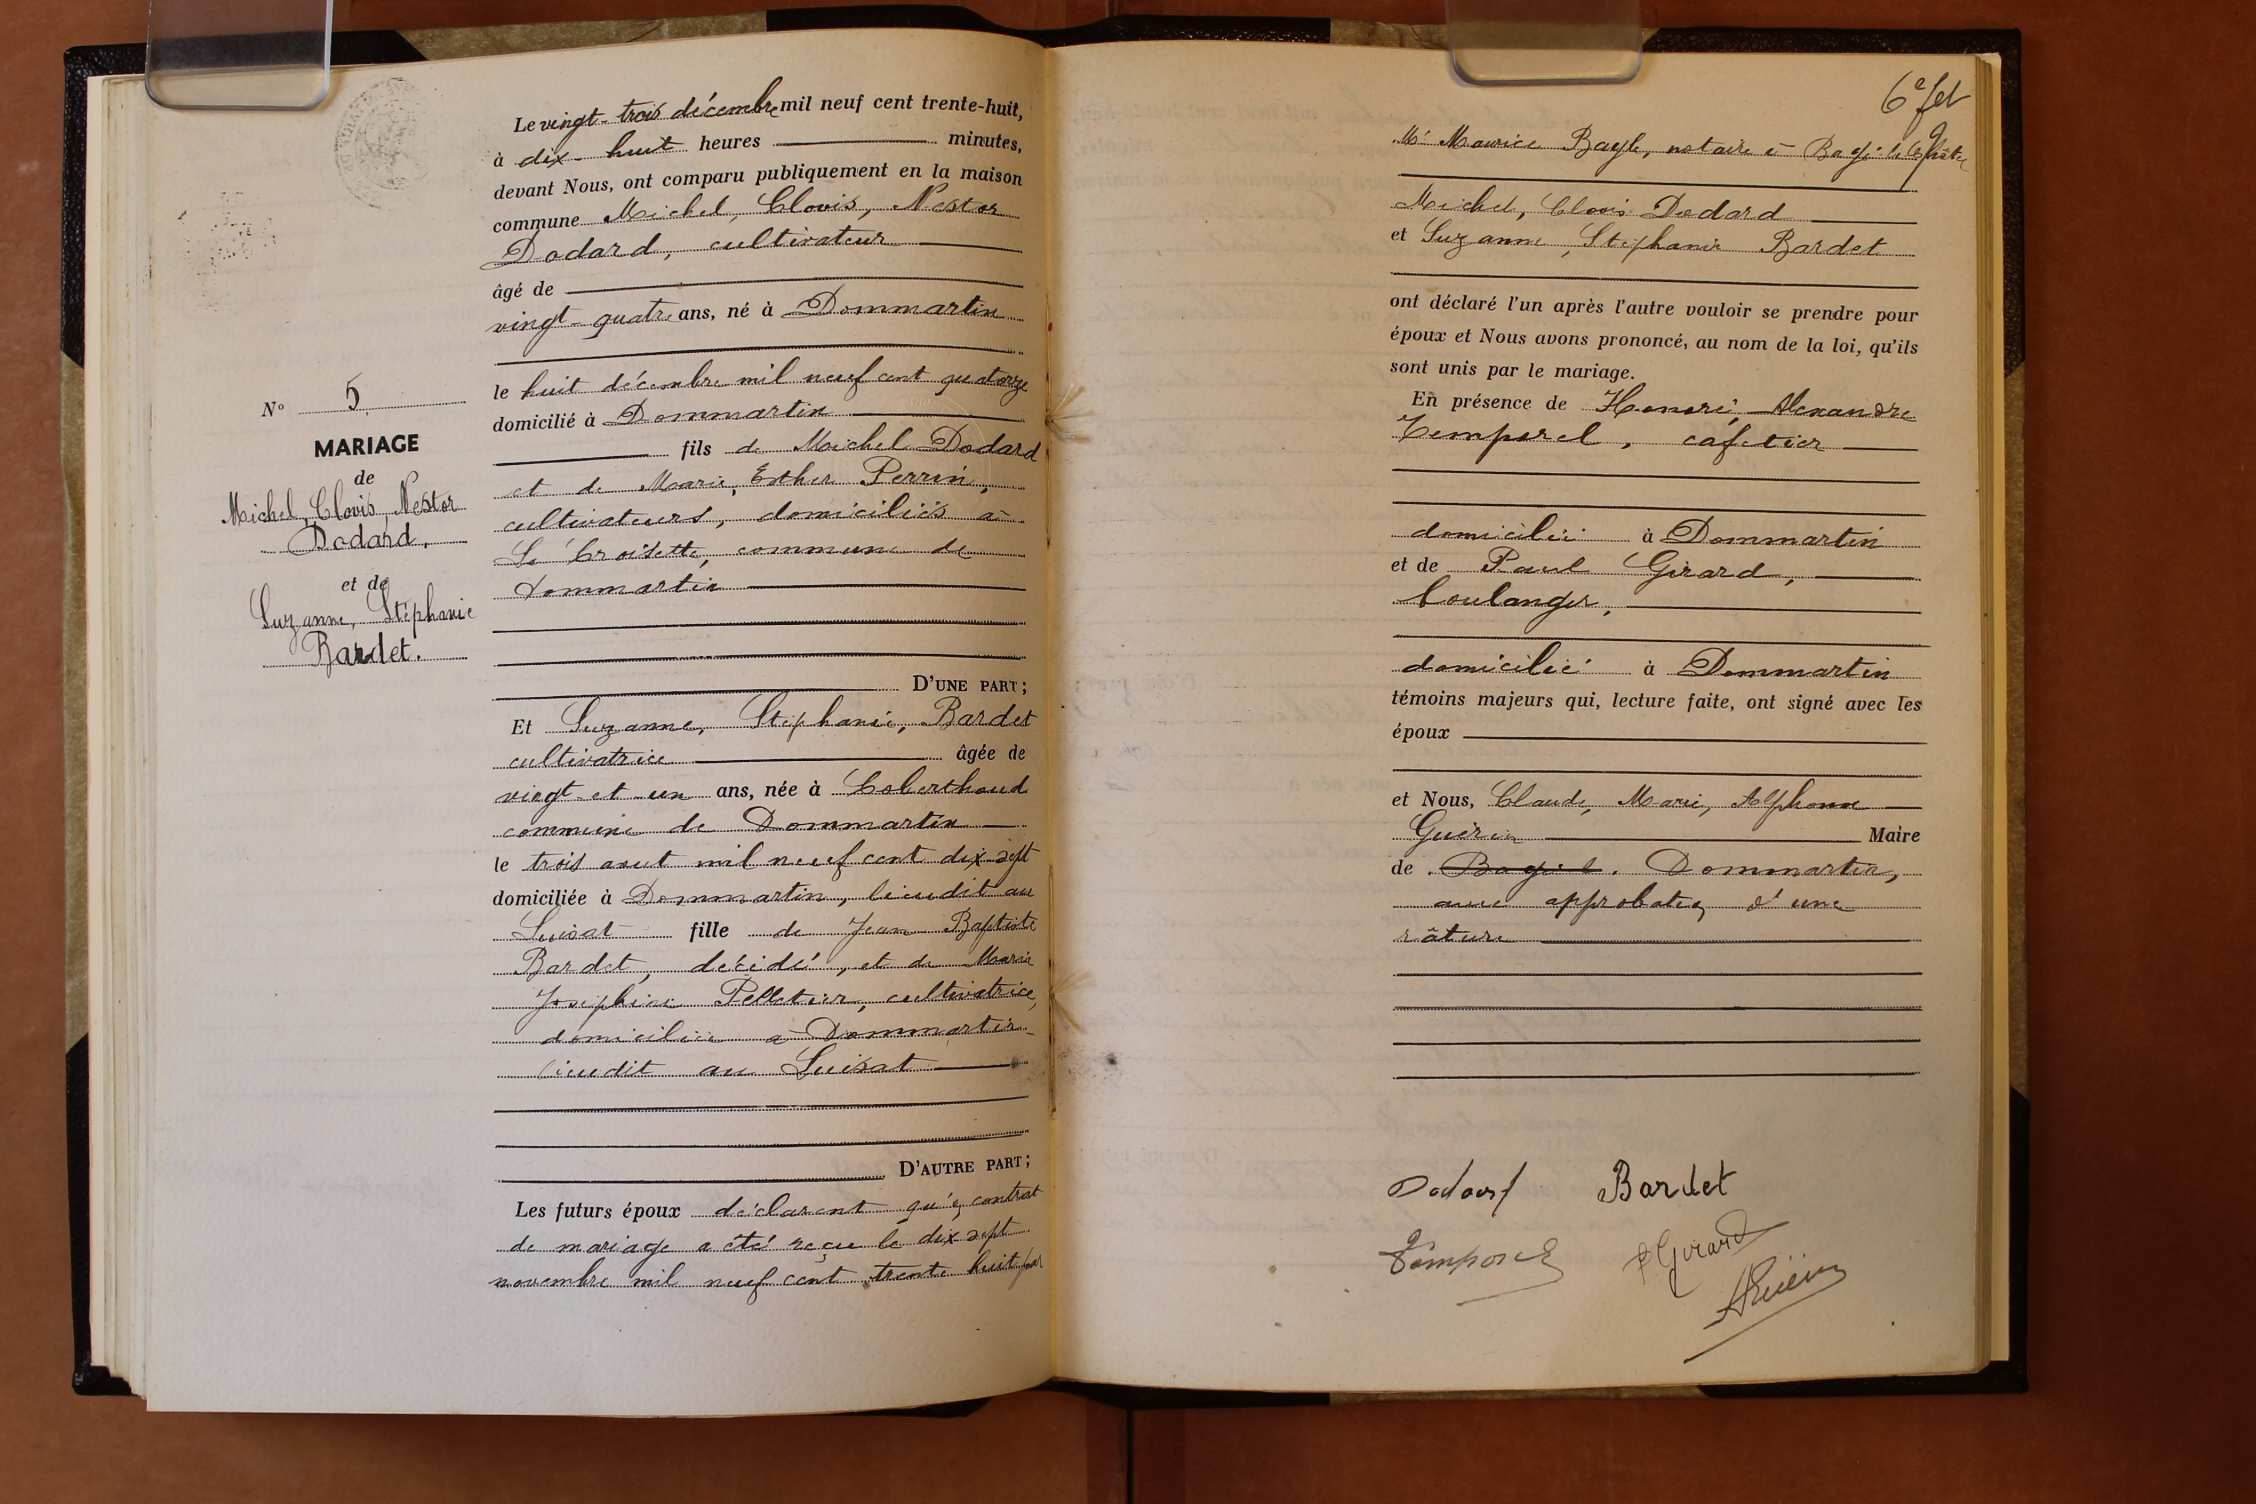 Le vingt-trois décembre mil neuf cent trente-huit,
à dix-huit heures minutes,
devant Nous, ont comparu publiquement en la maison
commune Michel, Clovis, Nestor
Dodard, cultivateur
âgé de
vingt-quatre ans, né à Dommartin
le huit décembre mil neuf cent quatorze
domicilié à Dommartin
fils de Michel Dodard
et de Marie, Esther Perrin,
cultivateurs, domiciliés à
La Croisette, commune de
Dommartin
D'UNE PART;
Et Suzanne, Stéphanie, Bardet
cultivatrice âgée de
vingt et un ans, née à Coberthoud
commune de Dommartin
le trois aout mil neuf cent dix-sept
domiciliée à Dommartin, lieudit au
Luisat fille de Jean Baptiste
Bardet, décédé, et de Marie
Joséphine Pelletier, cultivatrice,
domiciliée à Dommartin
lieudit au Luisat
D'AUTRE PART;
Les futurs époux déclarent qu'un contrat
de mariage a été reçu le dix sept
novembre mil neuf cent trente huit par
N° 5.
MARIAGE
de
Michel, Clovis, Nestor
Dodard,
et de
Suzanne, Stéphanie
Bardet.
6e fet
Me Maurice Bayle, notaire à Bagé-le-Châtel
Michel, Clovis Dodard
et Suzanne, Stéphanie Bardet
ont déclaré l'un après l'autre vouloir se prendre pour
époux et Nous avons prononcé, au nom de la loi, qu'ils
sont unis par le mariage.
En présence de Honoré, Alexandre
Temporel, cafetier
domicilié à Dommartin
et de Paul Girard,
boulanger,
domicilié à Dommartin
témoins majeurs qui, lecture faite, ont signé avec les
époux
et Nous, Claude, Marie, Alphonse
Guérin Maire
de Dommartin,
avec approbation d'une
râture
Dodard Bardet
Temporel P Girard
AGuérin